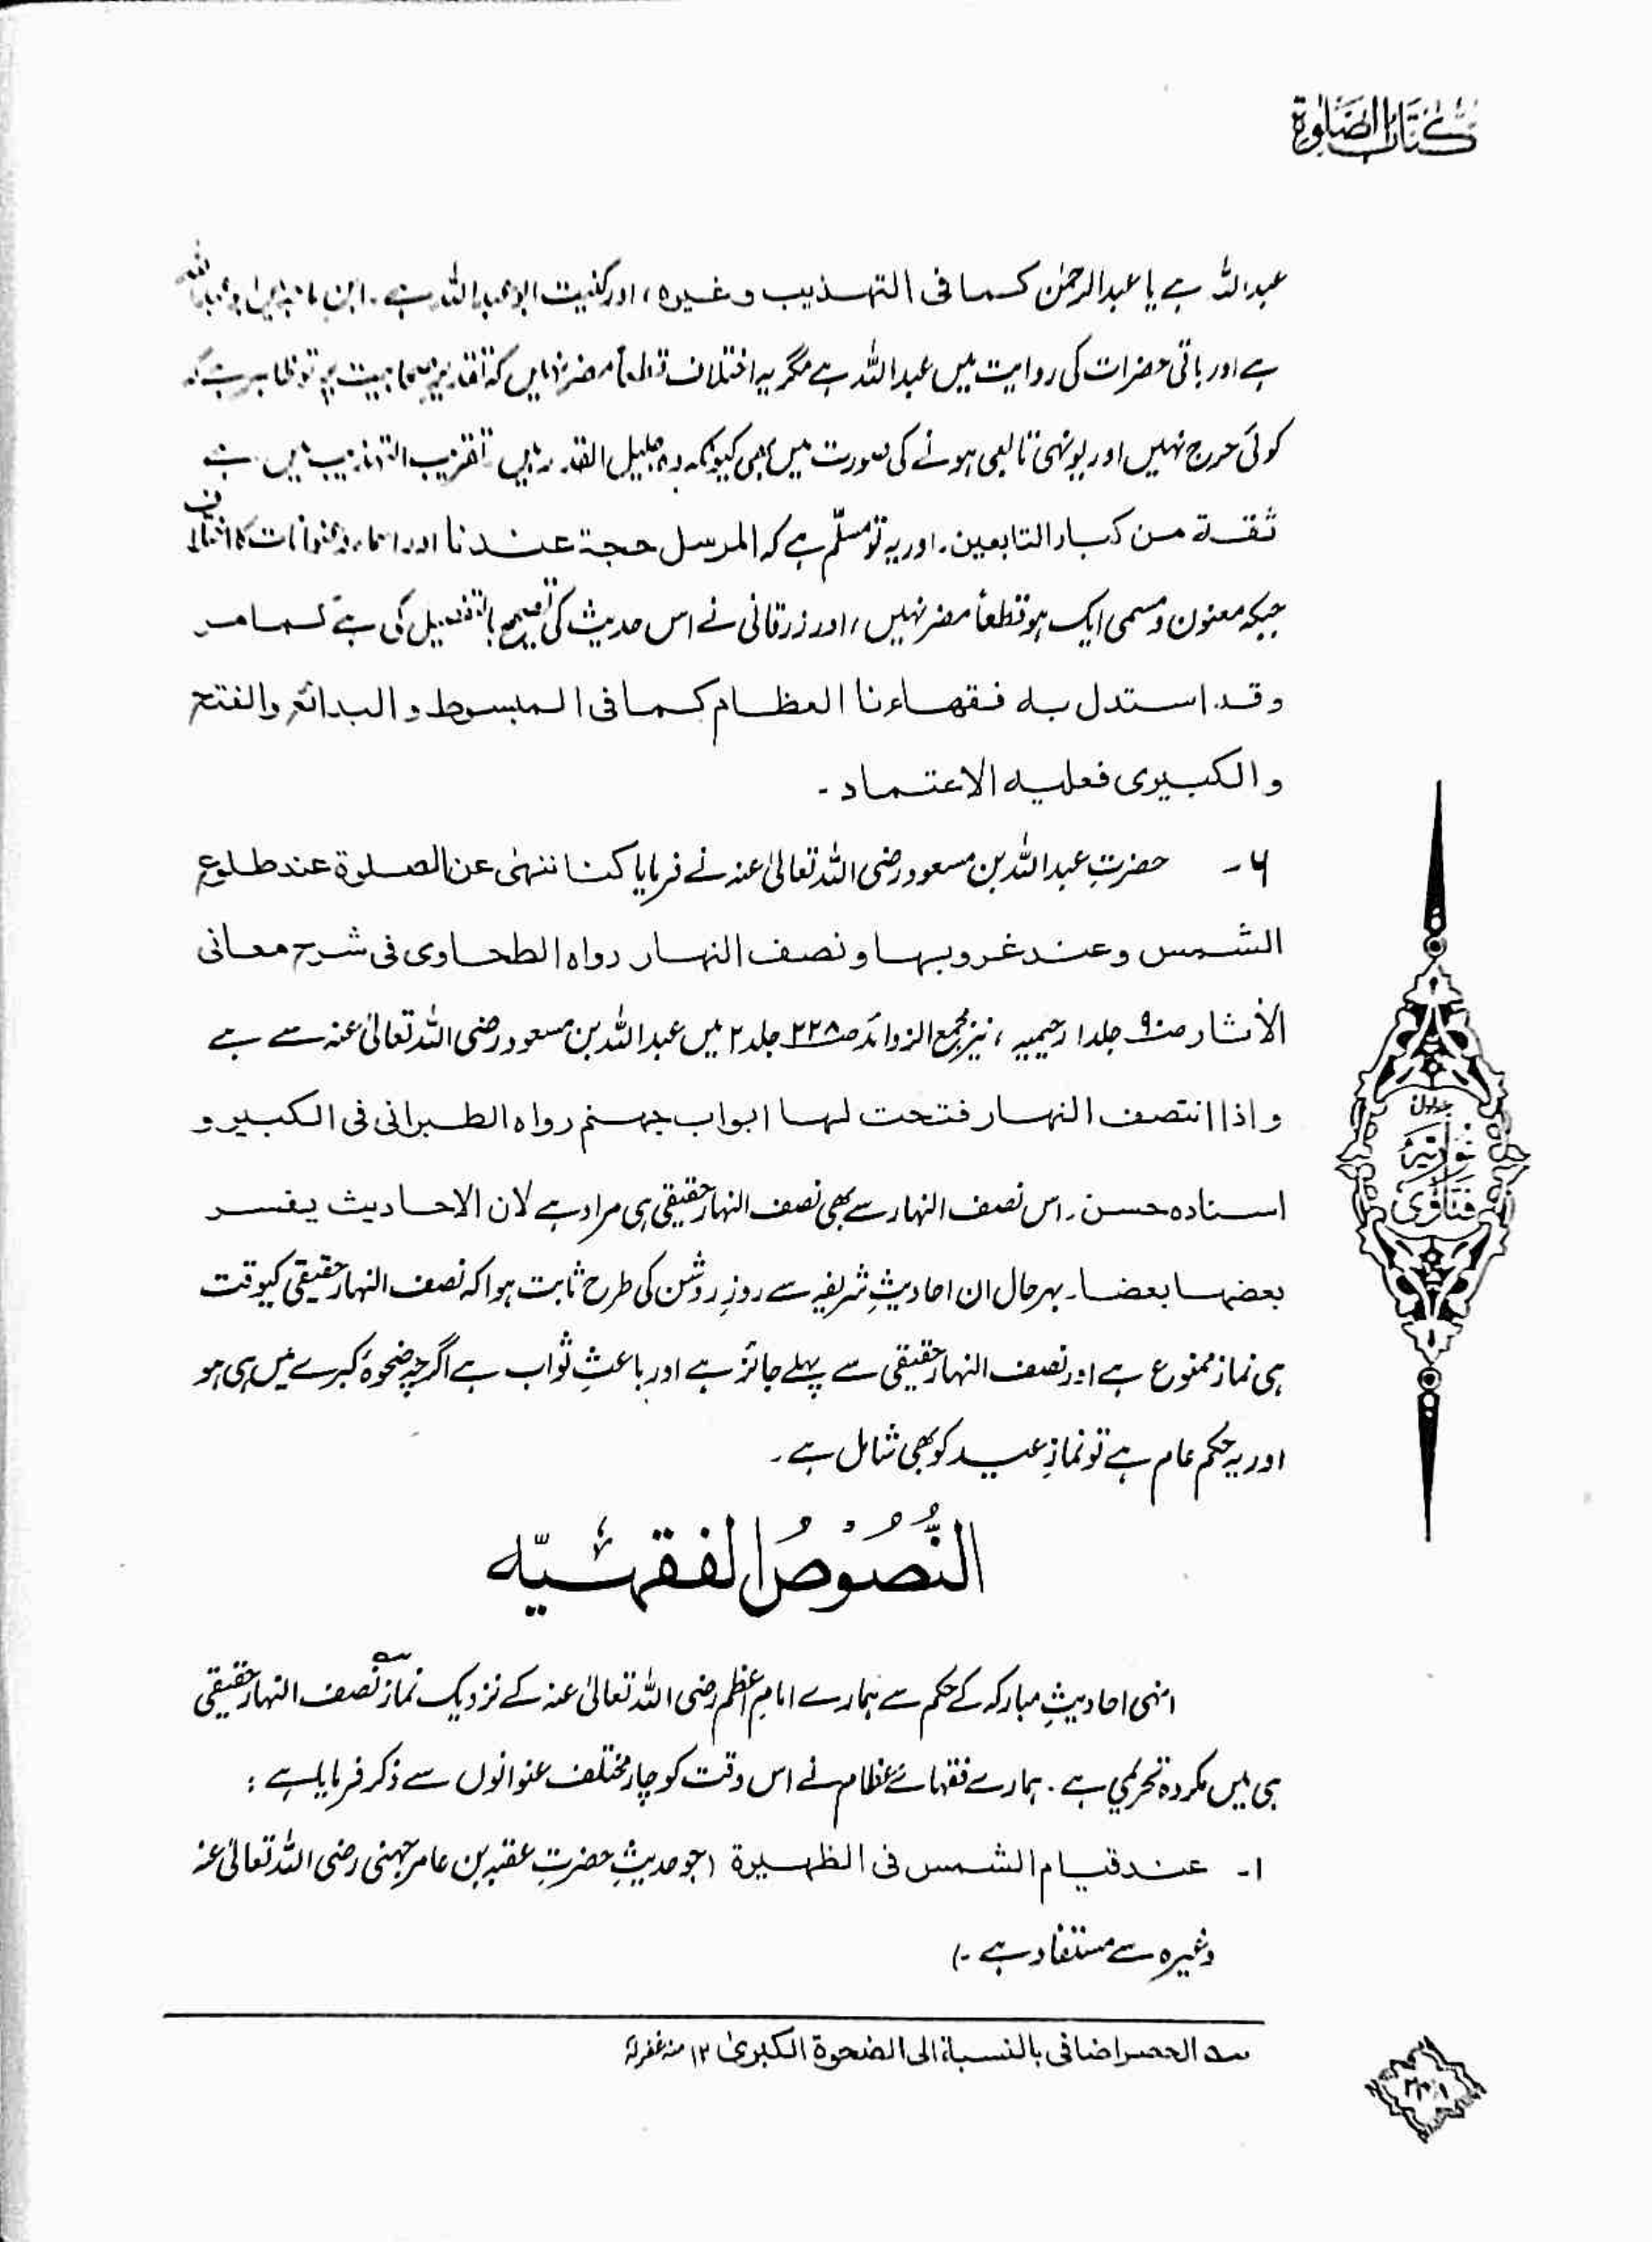 كتاب الصلوة
عبداللہ ہے یا عبدالرحمٰن كما فى التهذيب وغيره، اور کنیت ابوعبداللہ ہے۔ ابن ماجہ میں ابوعبداللہ
ہے اور باقی حضرات کی روایت میں عبداللہ ہے مگر یہ اختلاف قطعاً مضر نہیں کہ تقدیر صحابیت پر تو ظاہر ہے کہ
کوئی حرج نہیں اور یونہی تابعی ہونے کی صورت میں بھی کیونکہ وہ جلیل القدر ہیں تقریب التہذیب میں ہے
ثقة من كبار التابعين۔ اور یہ تو مسلّم ہے کہ المرسل حجة عندنا اور اسماء و عنوانات کا اختلاف
جبکہ معنون و مسمی ایک ہو قطعاً مضر نہیں، اور زرقانی نے اس حدیث کی تصحیح بالتفصیل کی ہے كما مر
وقد استدل به فقهاءنا العظام كما فى المبسوط و البدائع والفتح
و الكبيرى فعليه الاعتماد۔
۶۔ حضرتِ عبداللہ بن مسعود رضی اللہ تعالیٰ عنہ نے فرمایا كنا ننهى عن الصلوة عند طلوع
الشمس وعند غروبها و نصف النهار رواه الطحاوى فى شرح معانى
الأثار ص۹۰ جلد۱ رحیمیہ، نیز مجمع الزوائد ص۲۲۸ جلد۲ میں عبداللہ بن مسعود رضی اللہ تعالیٰ عنہ سے ہے
و اذا انتصف النهار فتحت لها ابواب جهنم رواه الطبرانى فى الكبير و
اسناده حسن۔ اس نصف النہار سے بھی نصف النہار حقیقی ہی مراد ہے لان الاحاديث يفسر
بعضها بعضا۔ بہرحال ان احادیثِ شریفہ سے روزِ روشن کی طرح ثابت ہوا کہ نصف النہار حقیقی کیوقت
ہی نماز ممنوع ہے اور نصف النہار حقیقی سے پہلے جائز ہے اور باعثِ ثواب ہے اگرچہ ضحوۂ کبرے میں ہی ہو
اور یہ حکم عام ہے تو نمازِ عید کو بھی شامل ہے۔
النُّصُوْصُ الفقهیّہ
انہی احادیثِ مبارکہ کے حکم سے ہمارے امامِ اعظم رضی اللہ تعالیٰ عنہ کے نزدیک نماز نصف النہار حقیقی
ہی میں مکروہ تحریمی ہے۔ ہمارے فقہائے عظام نے اس وقت کو چار مختلف عنوانوں سے ذکر فرمایا ہے:
۱۔ عند قيام الشمس فى الظهيرة (جو حدیثِ حضرتِ عقبہ بن عامر جہنی رضی اللہ تعالیٰ عنہ
وغیرہ سے مستفاد ہے۔)
ـه الحصر اضافى بالنسبة الى الضحوة الكبرى ۱۲ منہ غفرلہ
جلد اول
نوریہ
فتاوٰی